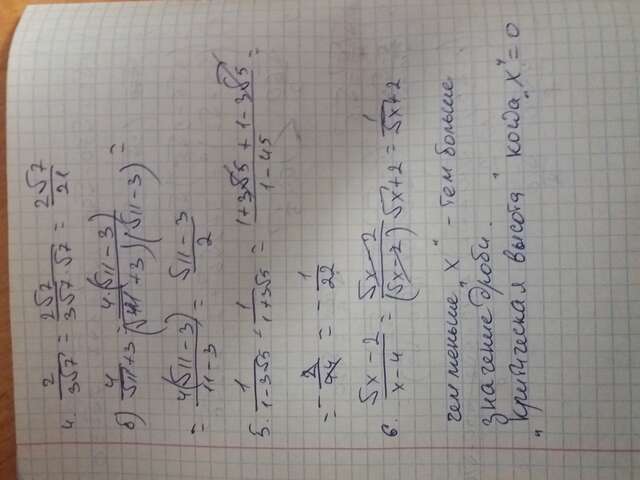 4. 2/(3√7) = 2√7/(3√7·√7) = 2√7/21
б) 4/(√11+3) = 4(√11-3)/((√11+3)(√11-3)) =
= 4(√11-3)/(11-3) = (√11-3)/2
5. 1/(1-3√5) + 1/(1+3√5) = (1+3√5+1-3√5)/(1-45) =
= -2/44 = -1/22
6. (√x-2)/(x-4) = (√x-2)/((√x-2)√x+2) = 1/(√x+2)
чем меньше „x" - тем больше
значение дроби.
„критическая высота" когда „x"=0